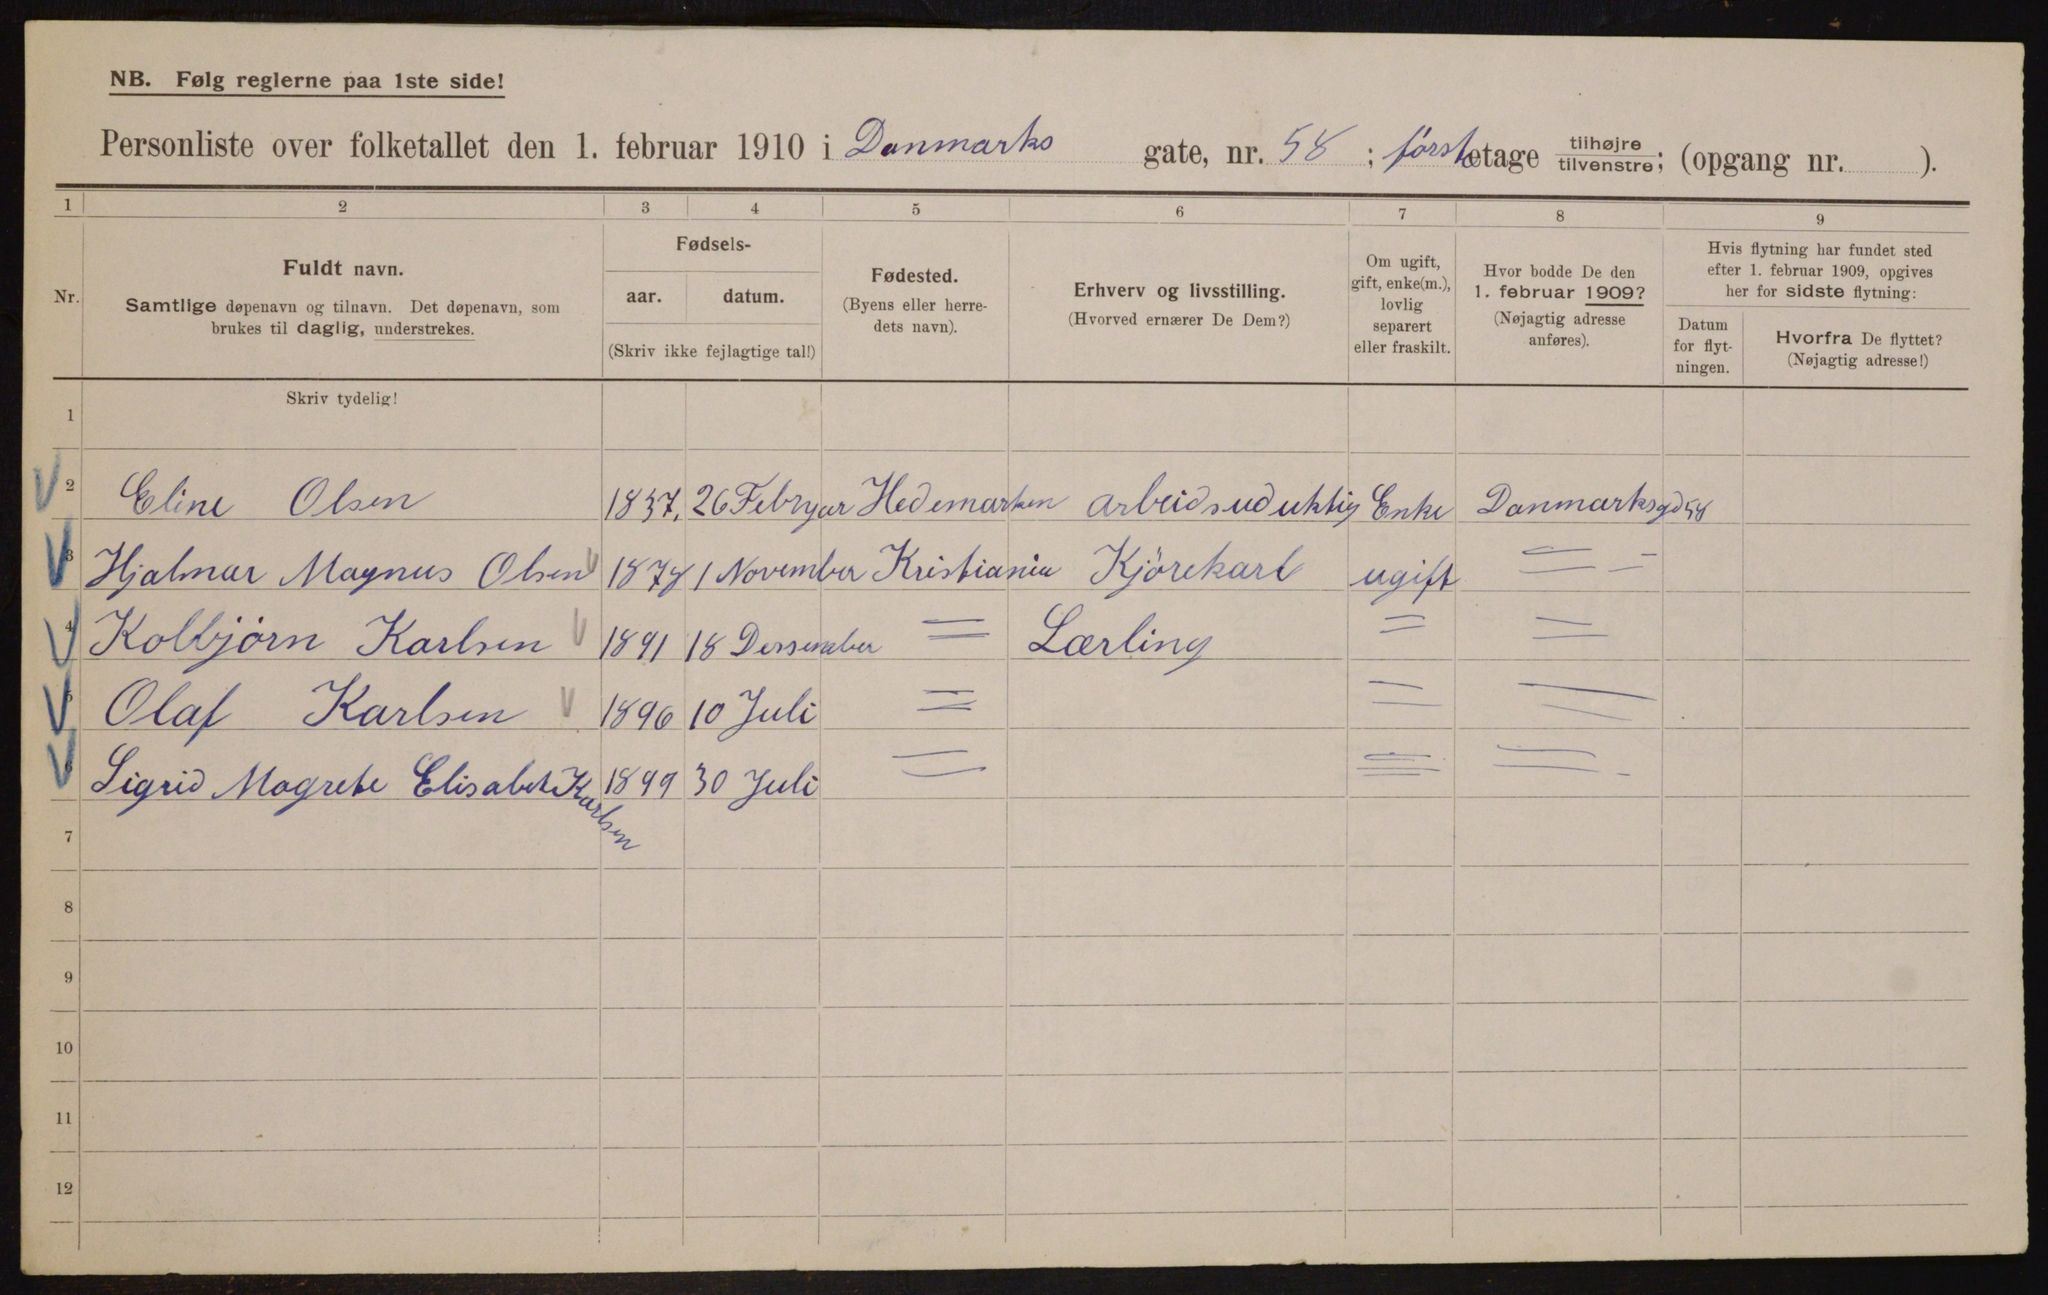 NB. Følg reglerne paa 1ste side!
Personliste over folketallet den 1. februar 1910 i Danmarks gate, nr. 58 ; første etage tilhøjre tilvenstre; (opgang nr. ).
1 2 3 4 5 6 7 8 9
Nr.
Fuldt navn.
Samtlige døpenavn og tilnavn. Det døpenavn, som
brukes til daglig, understrekes.
Fødsels-
aar. datum.
(Skriv ikke fejlagtige tal!)
Fødested.
(Byens eller herre-
dets navn).
Erhverv og livsstilling.
(Hvorved ernærer De Dem?)
Om ugift,
gift, enke(m.),
lovlig
separert
eller fraskilt.
Hvor bodde De den
1. februar 1909?
(Nøjagtig adresse
anføres).
Hvis flytning har fundet sted
efter 1. februar 1909, opgives
her for sidste flytning:
Datum
for flyt-
ningen.
Hvorfra De flyttet?
(Nøjagtig adresse!)
Skriv tydelig!
1
2 Eline Olsen 1837. 26 Februar Hedemarken arbeidsuduktig Enke Danmarksgd 58
3 Hjalmar Magnus Olsen 1878 1 November Kristiania Kjörekarl ugift = –
4 Kolbjörn Karlsen 1891 18 Dessember = Lærling = =
5 Olaf Karlsen 1896 10 Juli = = =
6 Sigrid Magrete Elisabet Karlsen 1899 30 Juli = = =
7
8
9
10
11
12